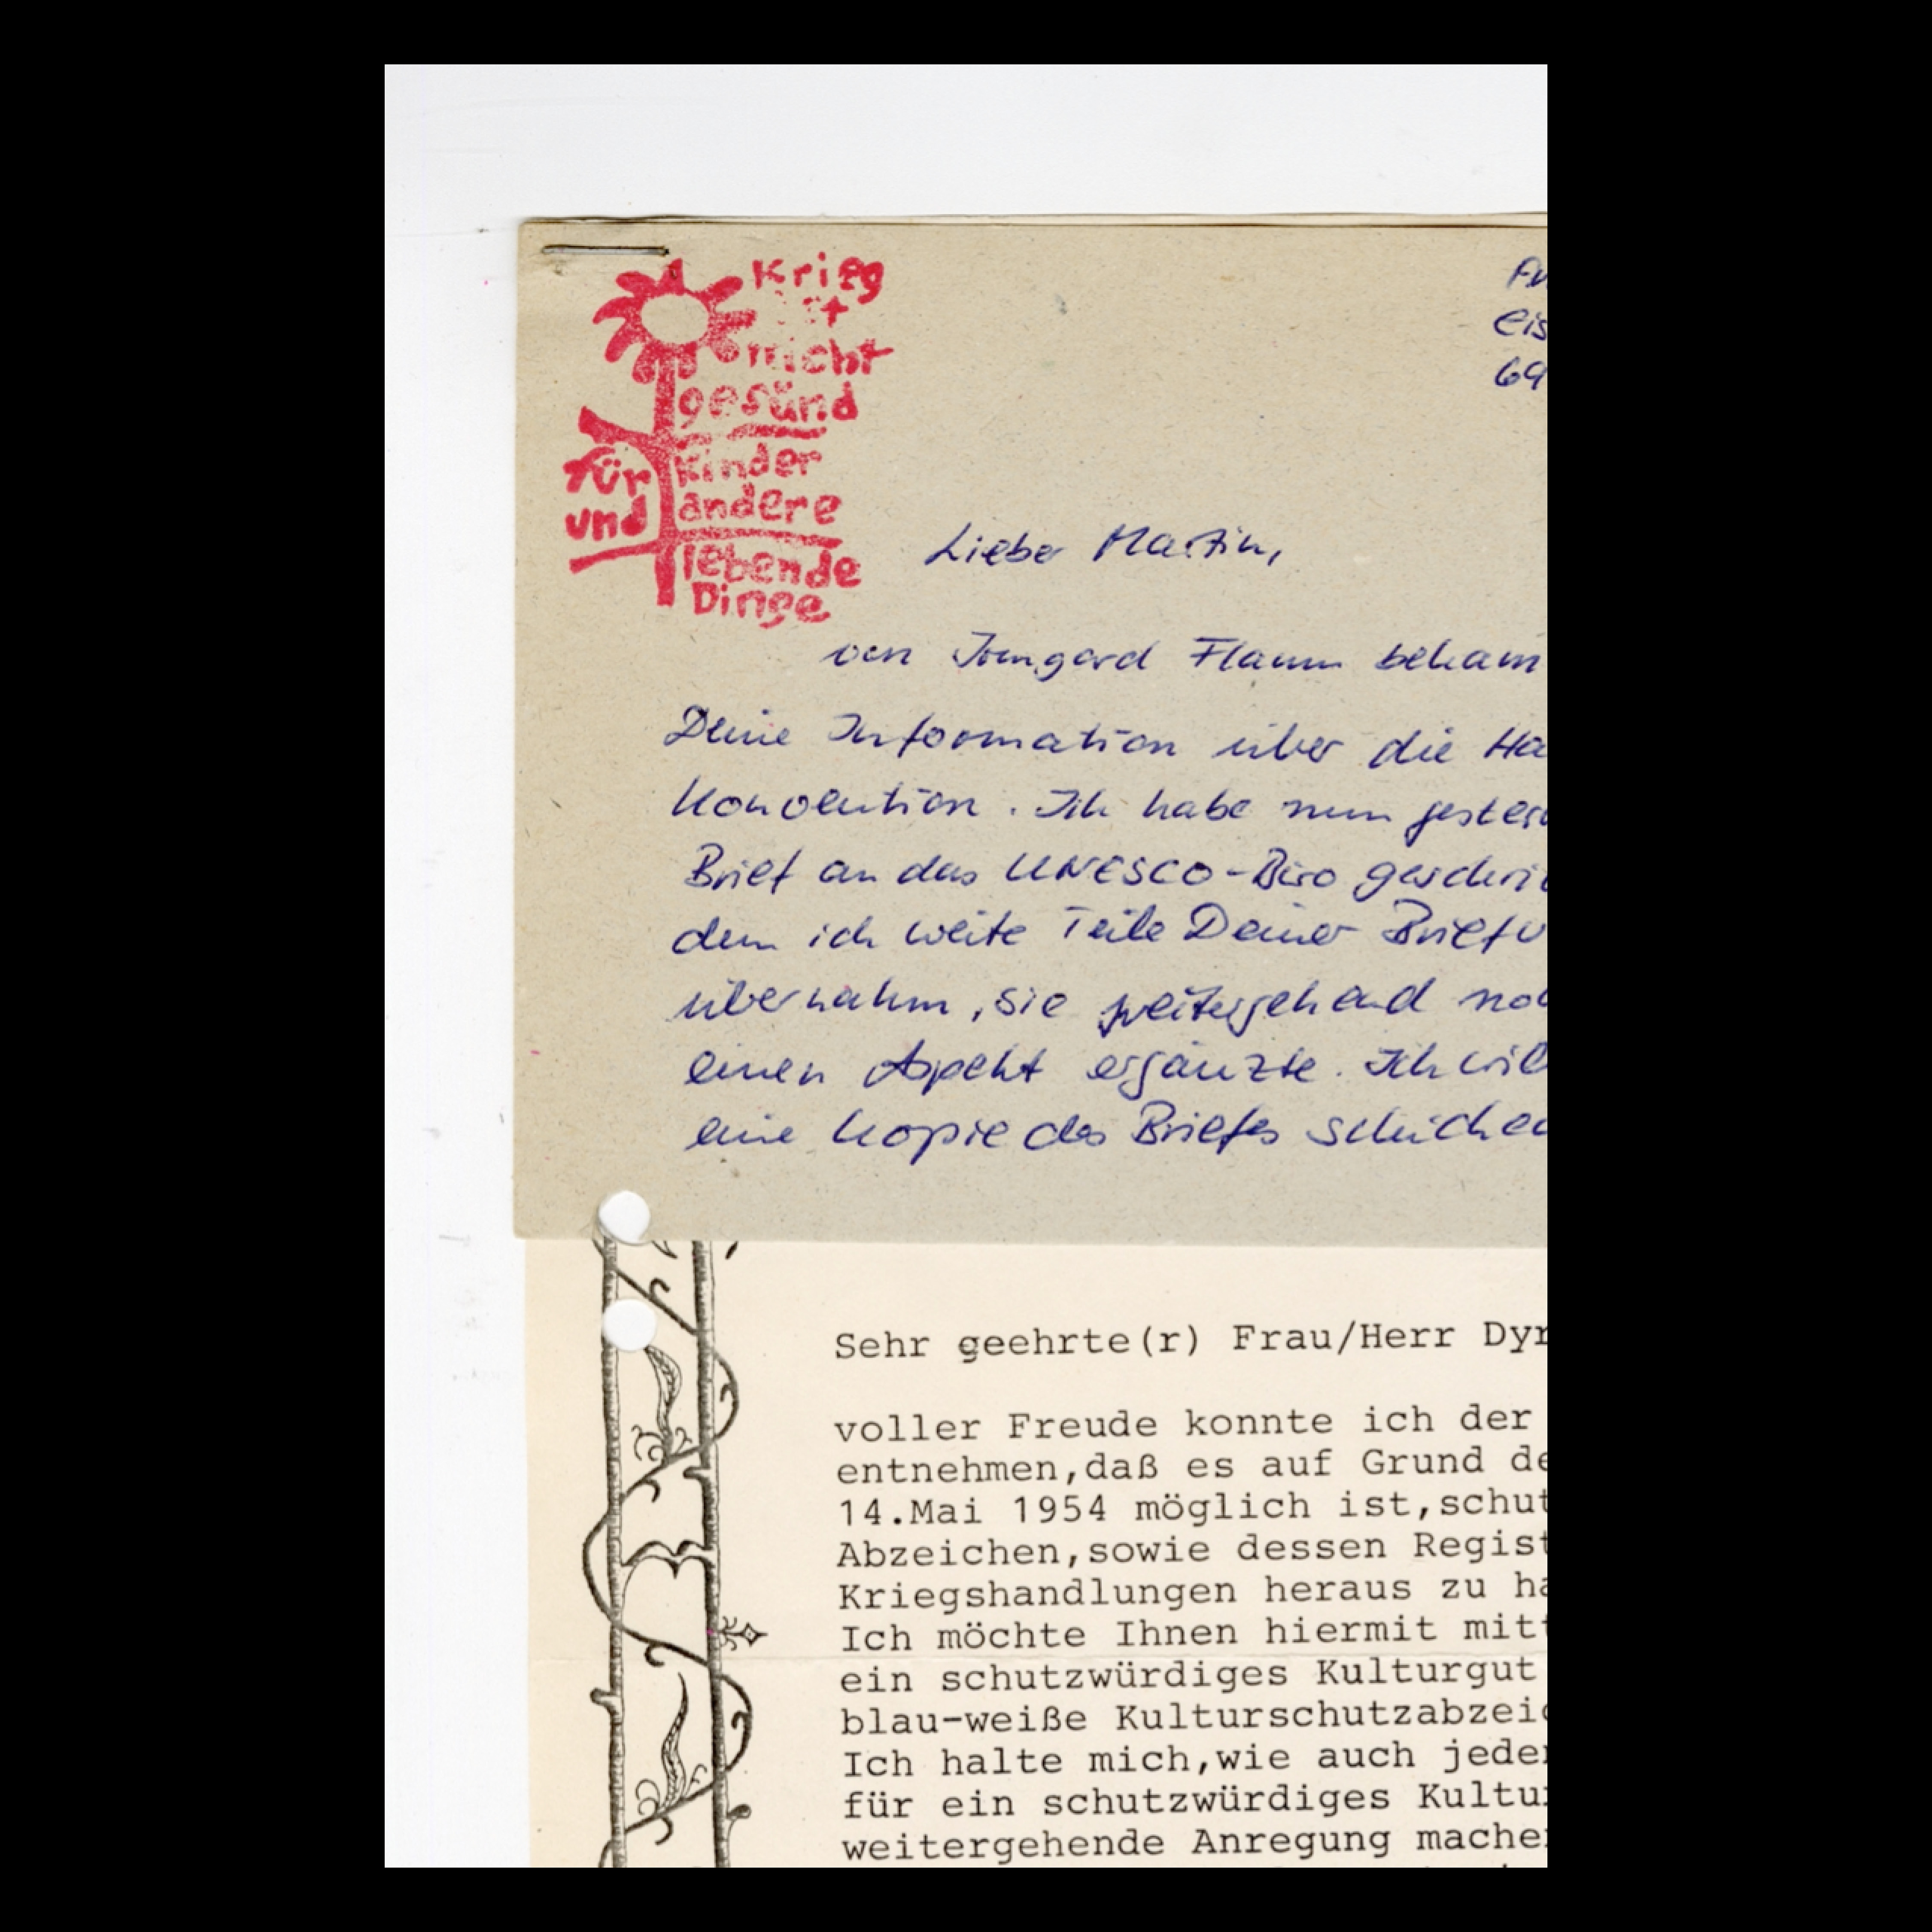 Krieg
ist
nicht
gesund
für Kinder
und andere
lebende
Dinge
Eis
69
Lieber Martin,
von Irmgard Flamm bekam
Deine Information über die Ha
Konvention. Ich habe nun gestern
Brief an das UNESCO-Büro geschrie
dem ich weite Teile Deiner Briefv
übernahm, sie weitergehend noc
einen Aspekt ergänzte. Ich will
eine Kopie des Briefes schicken
Sehr geehrte(r) Frau/Herr Dyr
voller Freude konnte ich der
entnehmen,daß es auf Grund de
14.Mai 1954 möglich ist,schut
Abzeichen,sowie dessen Regist
Kriegshandlungen heraus zu ha
Ich möchte Ihnen hiermit mitt
ein schutzwürdiges Kulturgut
blau-weiße Kulturschutzabzeic
Ich halte mich,wie auch jeder
für ein schutzwürdiges Kultur
weitergehende Anregung machen